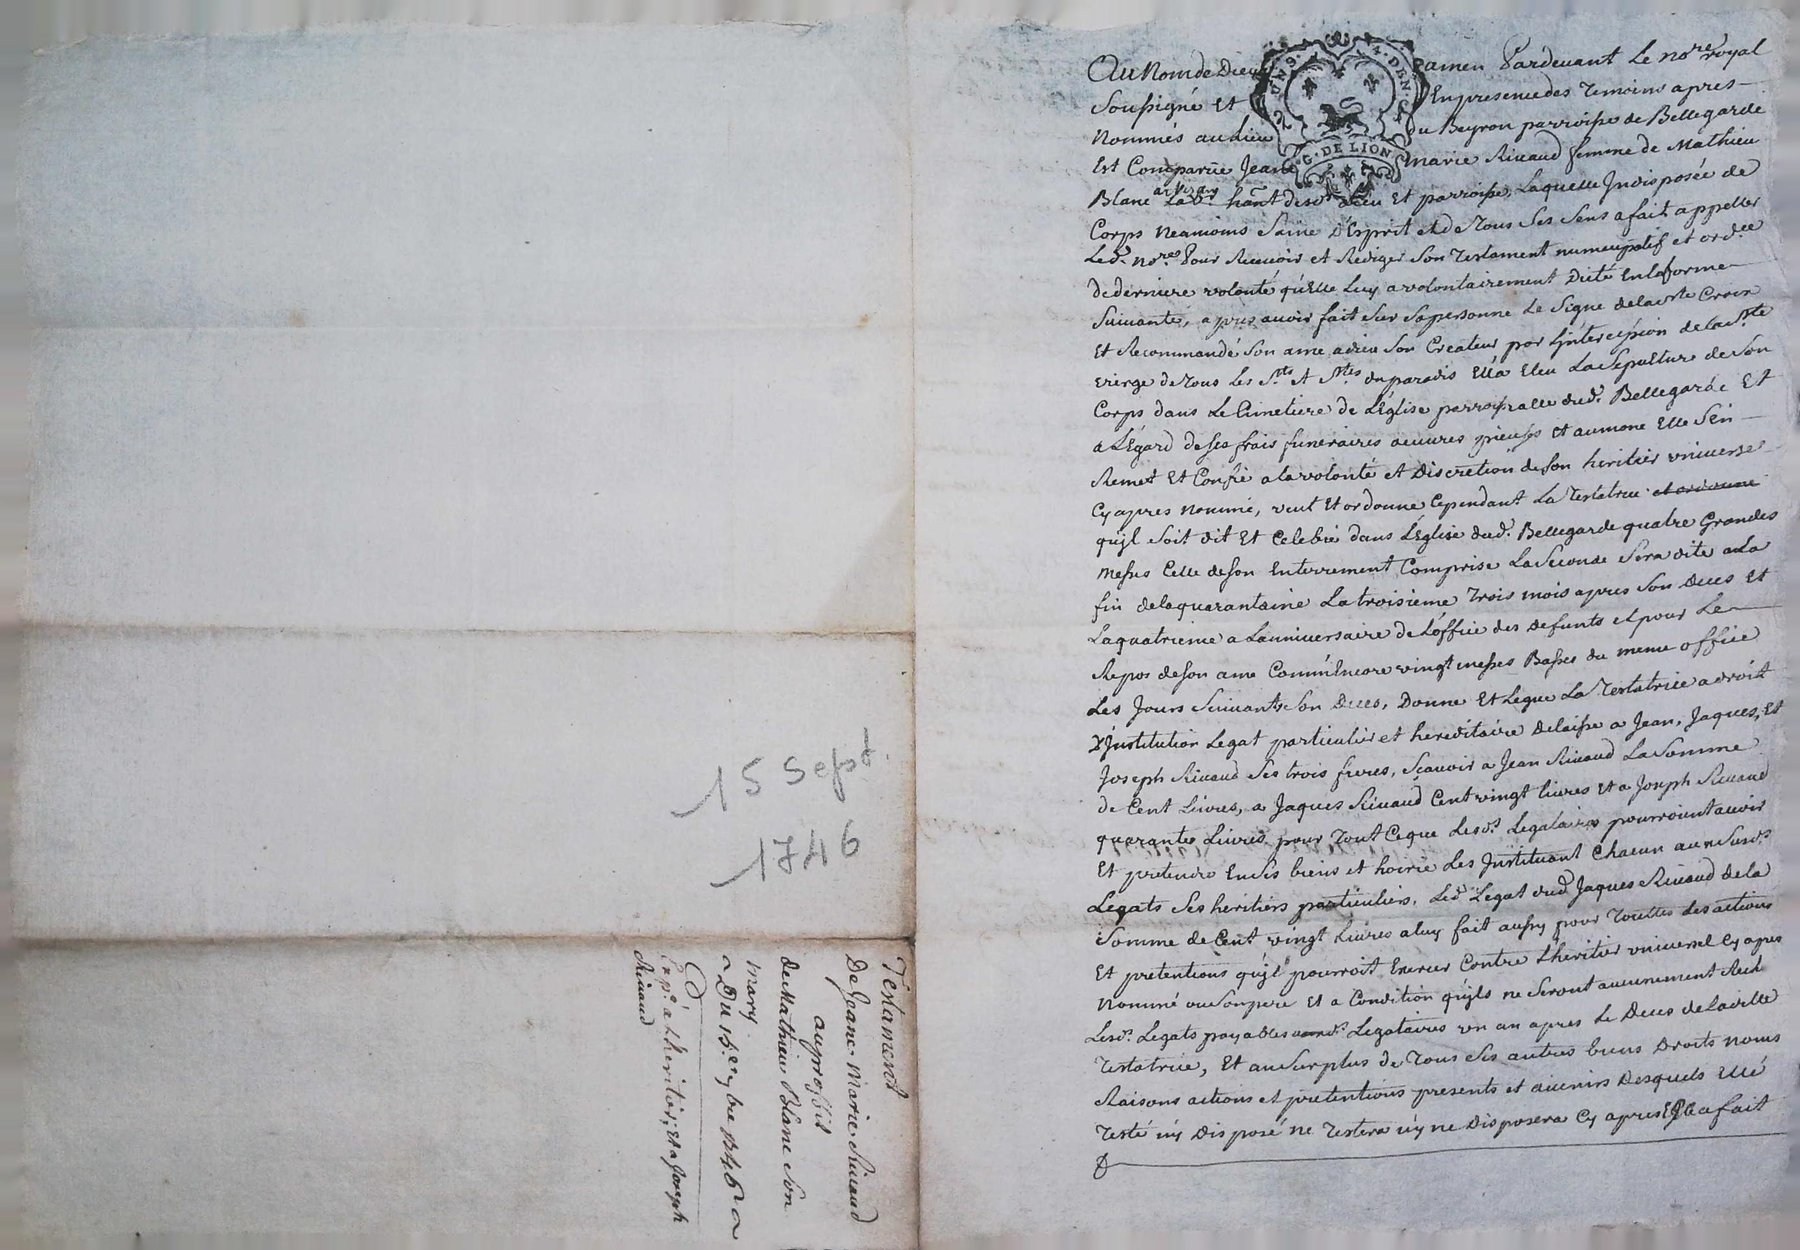 15 Sept.
1746
Testament
De Jeane Marie Rivaud
au proffit
de Mathieu Blanc son
mary
Du 15.e 7bre 1746
Exp.é a L'heritier, Et a Joseph
Rivaud
UN S. 4. DEN.
G. DE LION
Au Nom de Dieu amen Pardevant Le no.re royal
Soussigné Et En presence des Temoins apres
Nommés au Lieu du Beyron parroisse de Bellegarde
Est Comparüe Jeane marie Rivaud femme de Mathieu
Blanc hant desd. Lieu Et parroisse, Laquelle Indisposée de
Corps Neamoins Saine D'Esprit et de Tous Ses Sens a fait appeller
Led. no.re Pour Recevoir et Rediger Son Testament nuncupatif et ord.ce
De derniere volonté qu'Elle Luy a volontairement Dicté En la forme
Suivante, apres avoir fait Sur Sa personne Le Signe de la Ste Croix
Et Recommandé Son ame a dieu Son Createur par L'intercession de la S.te
vierge de Tous Les S.ts et S.tes du paradis Ell'a Eleu La Sepulture de Son
Corps dans Le Cimetiere de L'Eglise parroissialle dud. Bellegarde Et
a L'Egard de Ses frais funeraires oeuvres pieuses Et aumone Elle S'en
Remet Et Confie a la volonté et Discretion de Son heritier universel
Cy apres nommé, veut Et ordonne Cependant La Testatrice et ordonne
qu'jl Soit dit Et Celebré dans L'Eglise dud. Bellegarde quatre Grandes
Messes Celle de Son Enterrement Comprise La Seconde Sera dite a La
fin de la quarantaine La troisieme Trois mois apres Son Deces Et
La quatrieme a L'anniversaire de L'office des Defunts et pour Le
Repos de Son ame Comm'Encore vingt messes Basses du meme office
Les Jours Suivants Son Deces, Donne Et Legue La Testatrice a droit
D'Institution Legat particulier et hereditaire Delaisse a Jean, Jaques, Et
Joseph Rivaud Ses trois freres, Scavoir a Jean Rivaud La Somme
de Cent Livres, a Jaques Rivaud Cent vingt livres Et a Joseph Rivaud
quarante Livres pour Tout Ce que Lesd.s Legataires pourroient avoir
Et pretendre En Ses biens et hoirie Les Jnstituant Chacun au Susd.
Legats Ses heritiers particuliers, Led. Legat dud. Jaques Rivaud de la
Somme de Cent vingt Livres a luy fait aussy pour Touttes Les actions
Et pretentions qu'jl pourroit Exercer Contre L'heritier universel Cy apres
Nommé ou Son pere Et a Condition qu'jls ne Seront aucunement
Lesd. Legats payables Legataires un an apres Le Deces de Ladite
Testatrice, Et au Surplus de Tous Ses autres biens Droits noms
Raisons actions et pretentions presents et avenirs Desquels Elle
Testé n'y Disposé ne Testera n'y ne Disposera Cy apres Elle a fait